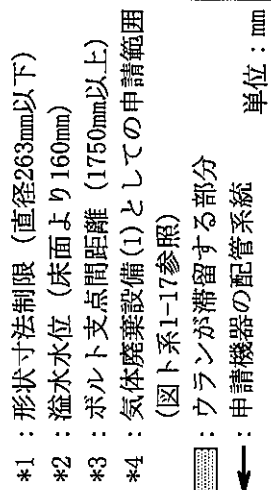 *1：形状寸法制限（直径263mm以下）
*2：溢水水位（床面より160mm）
*3：ボルト支点間距離（1750mm以上）
*4：気体廃棄設備(1)としての申請範囲
（図ト系1-17参照）
：ウランが滞留する部分
：申請機器の配管系統
単位：mm